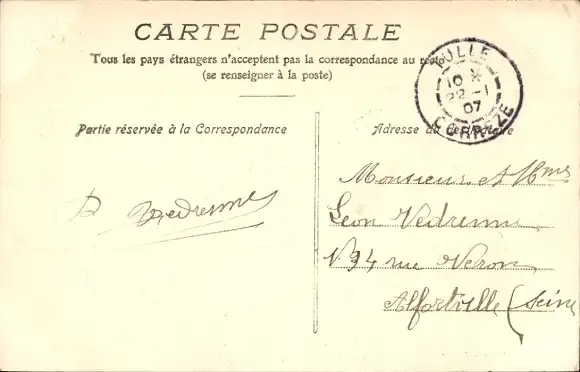 CARTE POSTALE
Tous les pays étrangers n'acceptent pas la correspondance au recto
(se renseigner à la poste)
TULLE
10 *
22 -1
07
CORREZE
Partie réservée à la Correspondance
Adresse du destinataire
Vedrenne
Monsieur et Mme
Leon Vedrenne
N 94 rue Veron
Alfortville (Seine